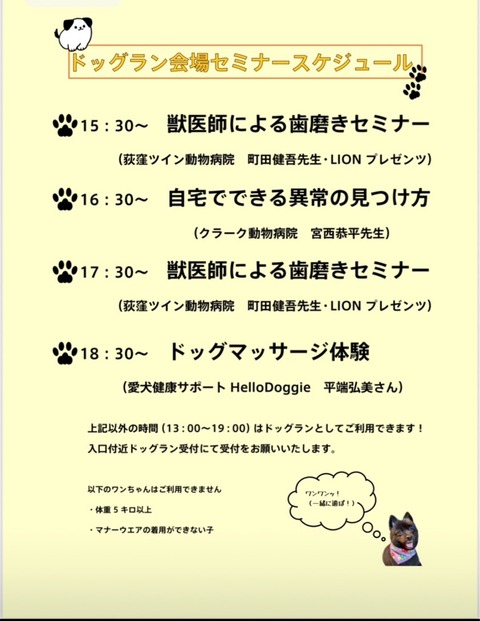 ドッグラン会場セミナースケジュール
15：30〜　獣医師による歯磨きセミナー
（荻窪ツイン動物病院　町田健吾先生・LION プレゼンツ）
16：30〜　自宅でできる異常の見つけ方
（クラーク動物病院　宮西恭平先生）
17：30〜　獣医師による歯磨きセミナー
（荻窪ツイン動物病院　町田健吾先生・LION プレゼンツ）
18：30〜　ドッグマッサージ体験
（愛犬健康サポート HelloDoggie　平端弘美さん）
上記以外の時間（13：00〜19：00）はドッグランとしてご利用できます！
入口付近ドッグラン受付にて受付をお願いいたします。
以下のワンちゃんはご利用できません
・体重 5 キロ以上
・マナーウエアの着用ができない子
ワンワンッ！
（一緒に遊ぼ！）